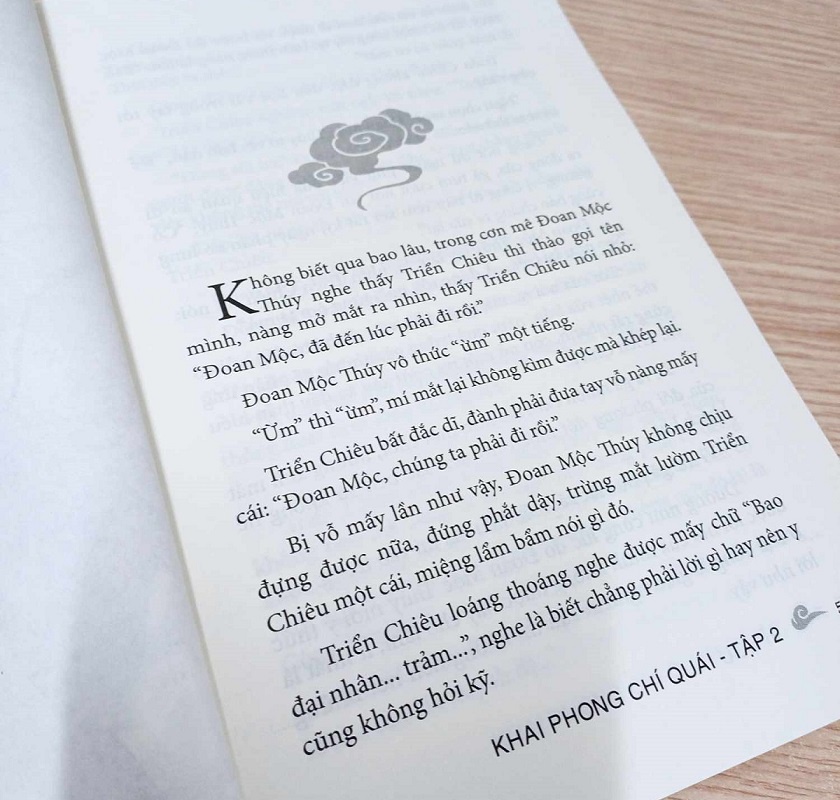 Không biết qua bao lâu, trong cơn mê Đoan Mộc
Thúy nghe thấy Triển Chiêu thì thào gọi tên
mình, nàng mở mắt ra nhìn, thấy Triển Chiêu nói nhỏ:
“Đoan Mộc, đã đến lúc phải đi rồi.”
Đoan Mộc Thúy vô thức “ừm” một tiếng.
“Ừm” thì “ừm”, mí mắt lại không kìm được mà khép lại.
Triển Chiêu bất đắc dĩ, đành phải đưa tay vỗ nàng mấy
cái: “Đoan Mộc, chúng ta phải đi rồi.”
Bị vỗ mấy lần như vậy, Đoan Mộc Thúy không chịu
đựng được nữa, đứng phắt dậy, trừng mắt lườm Triển
Chiêu một cái, miệng lẩm bẩm nói gì đó.
Triển Chiêu loáng thoáng nghe được mấy chữ “Bao
đại nhân... trảm...”, nghe là biết chẳng phải lời gì hay nên y
cũng không hỏi kỹ.
KHAI PHONG CHÍ QUÁI - TẬP 2